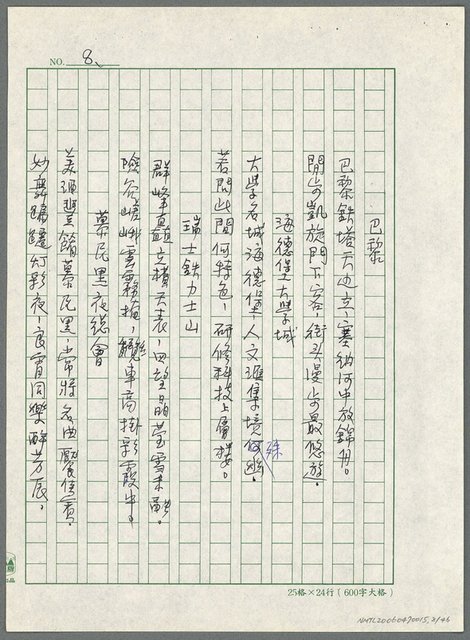 NO. 8、
巴黎
巴黎鉄塔天边立，塞納河中放錦舟。
閒步凱旋門下客，街头漫步最悠游。
海德堡大學城
大學名城海德堡，人文滙集境何幽。殊
若問此間何特色，研修科技上層樓。
瑞士鉄力士山
群峰直立積天表，四望晶瑩雪未融
險谷嵯峨雲霧掩，纜車高掛彩霞中。
慕尼黑夜總會
美酒豐餚慕尼黑，常將名曲勵佳賓。
妙舞蹁躚灯影夜，良宵同樂醉芳辰。
25格×24行（600字大格）
NMTL20060470015,8/46